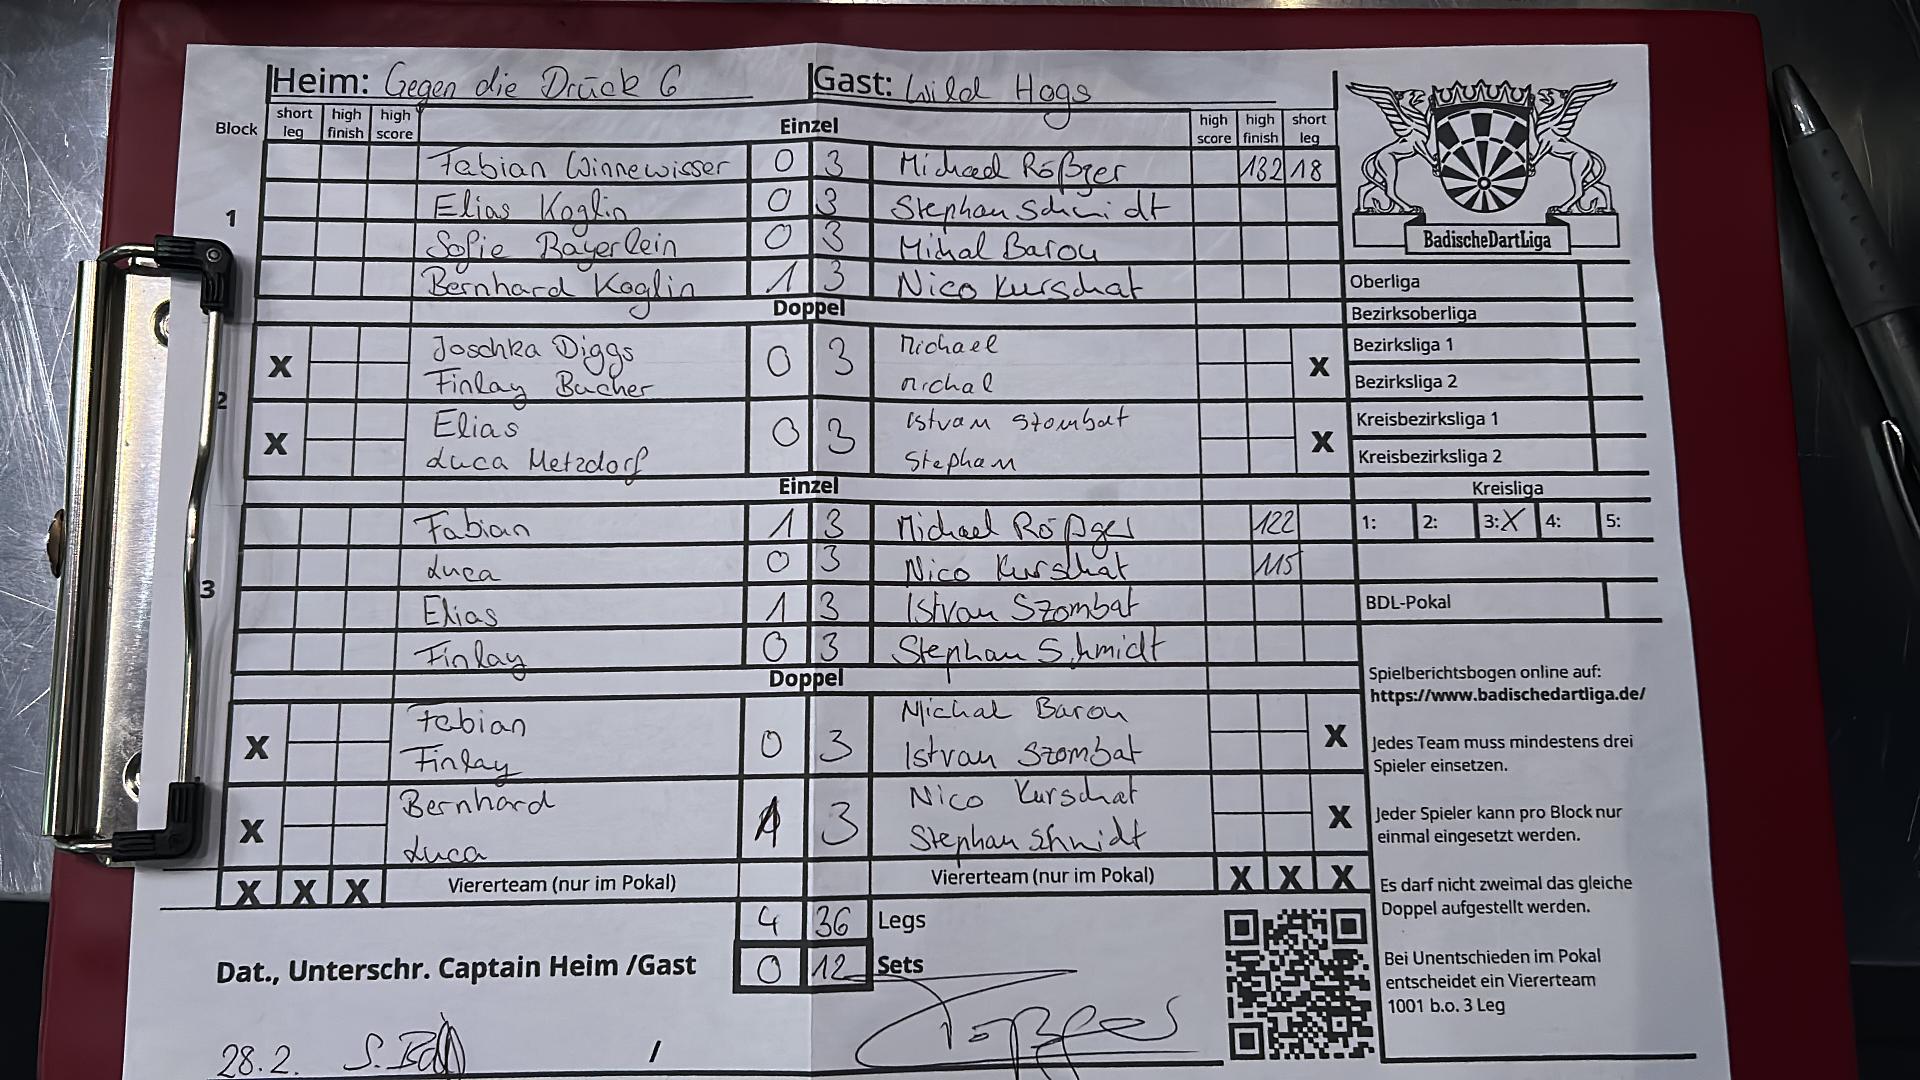 Heim: Gegen die Drück 6 Gast: Wild Hogs
Block short leg high finish high score Einzel high score high finish short leg
Fabian Winnewisser 0 3 Michael Rößger 132 18
1 Elias Koglin 0 3 Stephan Schmidt
Sofie Bayerlein 0 3 Michal Barou
Bernhard Koglin 1 3 Nico Kurschat
Doppel
X Joschka Diggs 0 3 Michael X
Finlay Bucher Michal
2
X Elias 0 3 Istvan Szombat X
Luca Metzdorf Stephan
Einzel
Fabian 1 3 Michael Rößger 122
Luca 0 3 Nico Kurschat 115
3 Elias 1 3 Istvan Szombat
Finlay 0 3 Stephan Schmidt
Doppel
X Fabian 0 3 Michal Barou X
Finlay Istvan Szombat
X Bernhard 1 3 Nico Kurschat X
Luca Stephan Schmidt
X X X Viererteam (nur im Pokal) Viererteam (nur im Pokal) X X X
4 36 Legs
Dat., Unterschr. Captain Heim /Gast 0 12 Sets
28.2. /
BadischeDartLiga
Oberliga
Bezirksoberliga
Bezirksliga 1
Bezirksliga 2
Kreisbezirksliga 1
Kreisbezirksliga 2
Kreisliga
1: 2: 3: X 4: 5:
BDL-Pokal
Spielberichtsbogen online auf:
https://www.badischedartliga.de/
Jedes Team muss mindestens drei
Spieler einsetzen.
Jeder Spieler kann pro Block nur
einmal eingesetzt werden.
Es darf nicht zweimal das gleiche
Doppel aufgestellt werden.
Bei Unentschieden im Pokal
entscheidet ein Viererteam
1001 b.o. 3 Leg